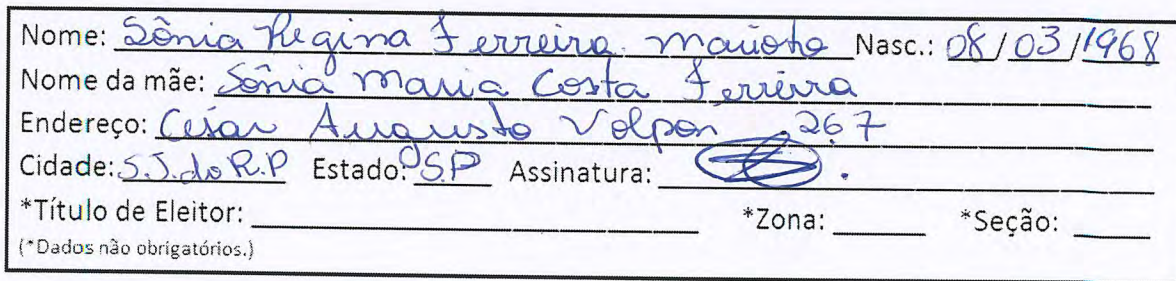 Nome: Sônia Regina Ferreira Nasc.: 08/03/1968
Nome da mãe: Sônia Maria Costa Ferreira
Endereço: Cesar Augusto Volpon, 267
Cidade: S.J.do R.P Estado: SP Assinatura:
*Título de Eleitor: *Zona: *Seção:
(*Dados não obrigatórios.)